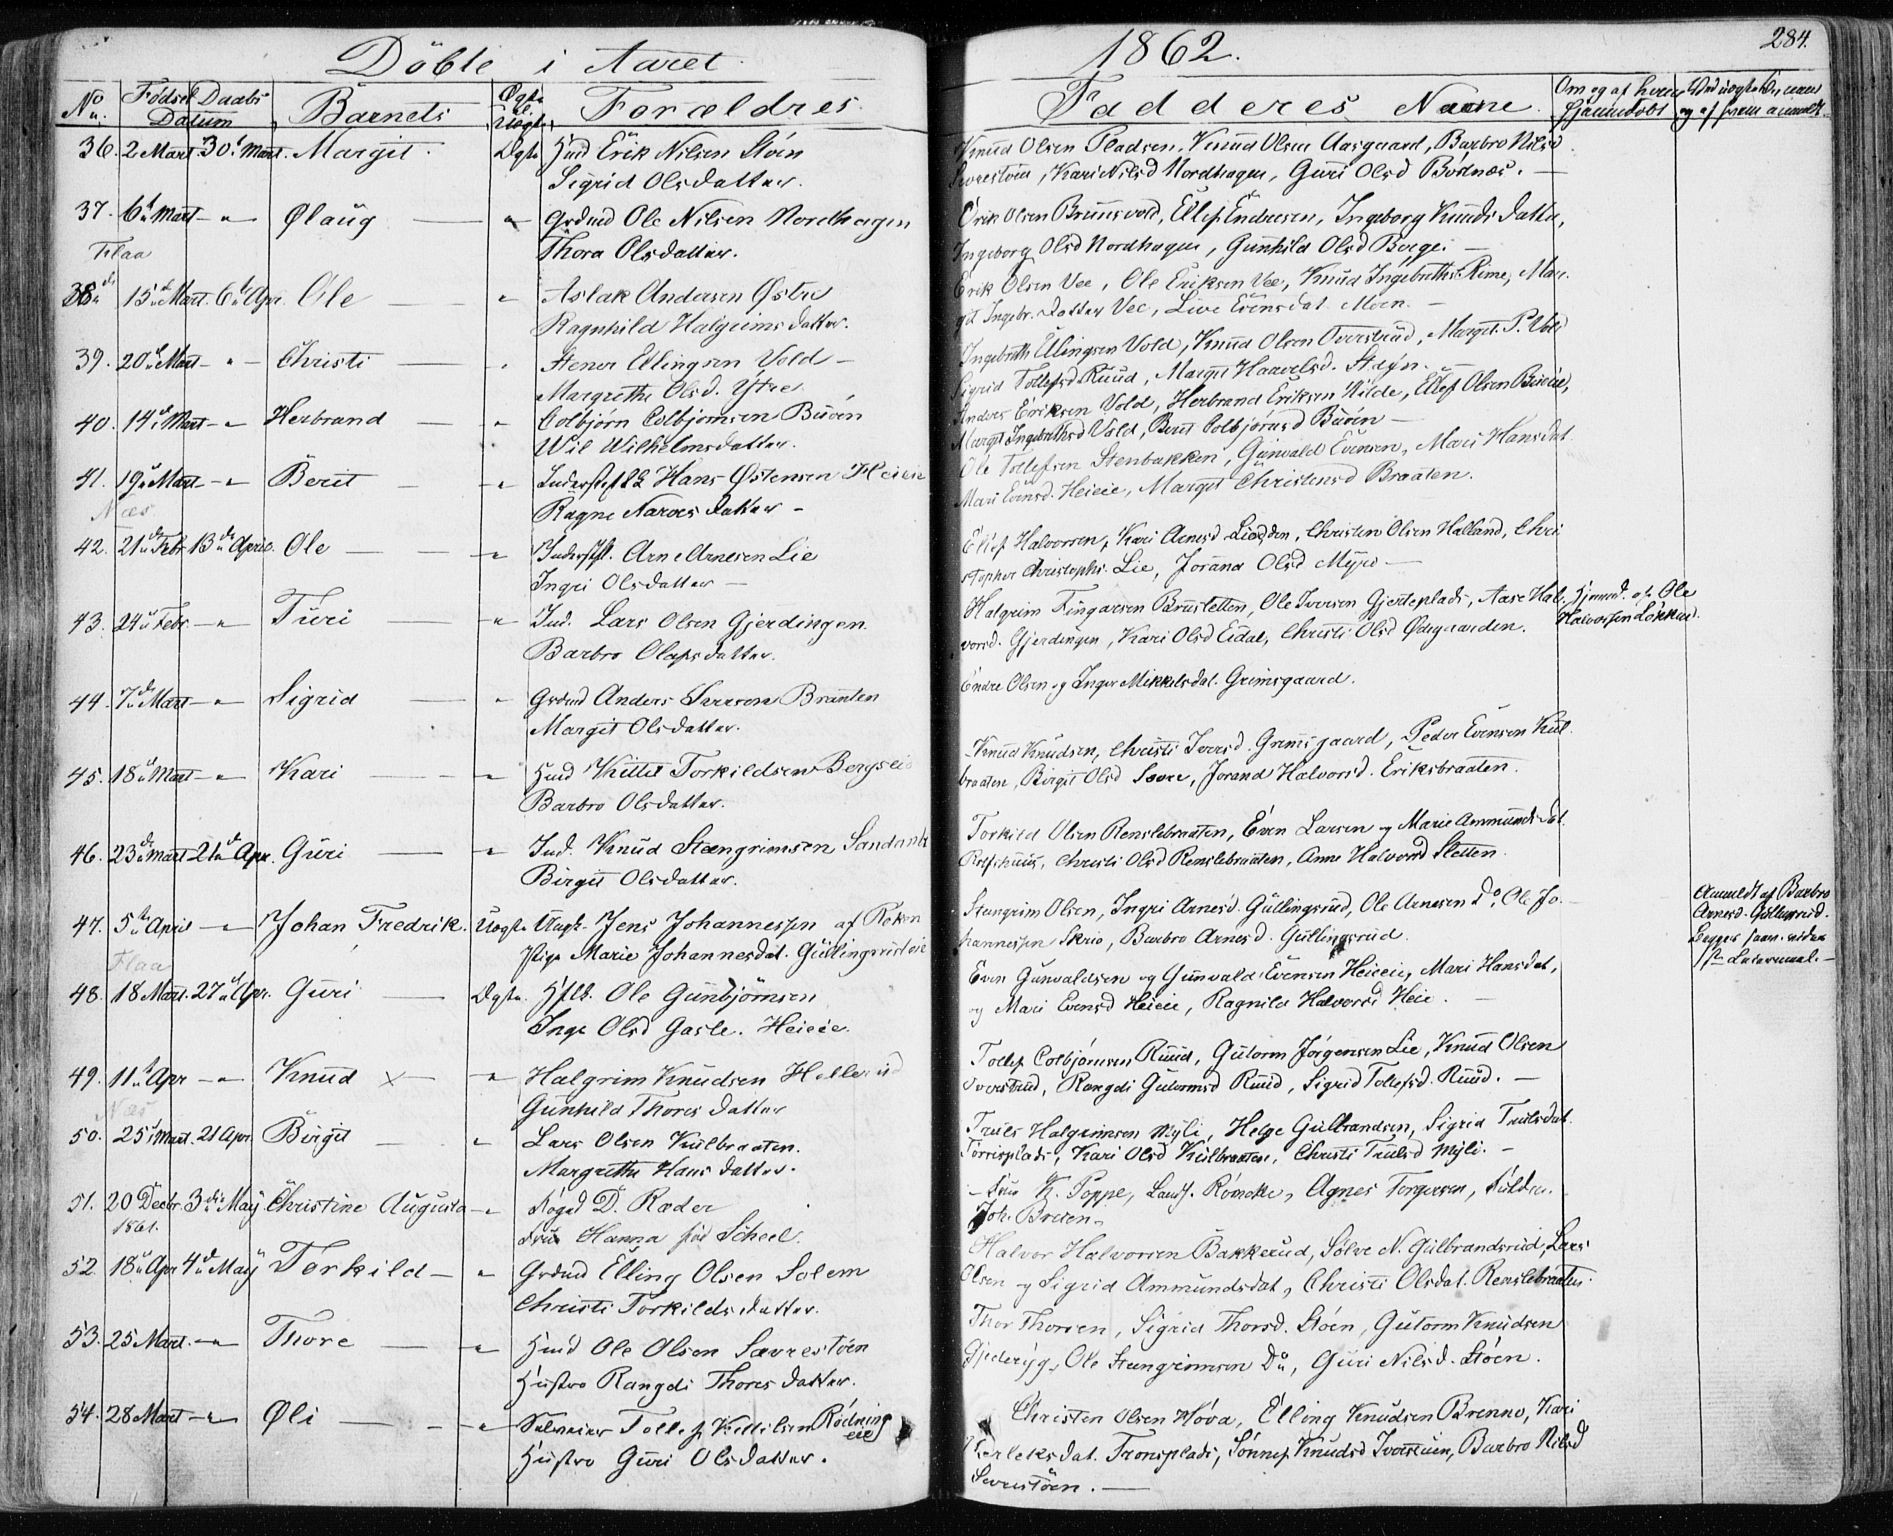 Döbte i Aaret 1862. 284.
No Fødsel Daabs Datum Barnets Ægte el. Uægte Forældres Fadderes Navne Om og af hvem hjemmedøbt
36. 2 Mart. 30 Mart. Margit Ægte Erik Nilsen Støen
Sigrid Olsdatter.
Knud Olsen Pladsen, Knud Olsen Aasgaard, Barbro Nilsd
Sevrestøen, Kari Nilsd Nordhagen, Guri Olsd Bostnæs.
37. 6 Mart - " - Ølaug " Grdmd Ole Nilsen Nordhagen
Thora Olsdatter.
Erik Olsen Brunsvold, Ellef Endresen, Ingeborg Knudsdatter,
Ingeborg Olsd Nordhagen, Gunhild Olsd Børgei
Flaa
38. 15 Mart. 6 Apr. Ole " Aslak Andersen Østre
Ragnhild Halgrimsdatter.
Erik Olsen Vee, Ole Eriksen Vee, Knud Ingebrethss. Rime, Mar-
git Ingebr. datter Vee, Live Evensdat. Moen.
39. 20 Mart - " - Christi " Stener Ellingsen Vold
Margrethe Olsd. Ytre
Ingebreth Ellingsen Vold, Knud Olsen Oversrud, Margit P. Vold
Sigrid Tollefsd Ruud, Margit Haavelsd.
40. 14 Mart - " - Herbrand " Colbjørn Colbjørnsen Buøen
Wil Wilhelmsdatter.
Anders Eriksen Vold, Herbrand Eriksen Kilde, Ellef Olsen
Margit Ingebrethsd Vold, Berit Colbjørnsd Buøen
41. 19 Mart - " - Berit " Hans Østensen Heieie
Ragne Narvesdatter
Ole Tollefsen Stenbakken, Gunvald Evensen, Mari Hansdat
Mari Evensd. Heieie, Margit Christensd Braaten.
Næs
42. 21 Febr 13 April Ole " Inderst. Arne Arnesen Lie
Ingri Olsdatter
Ellef Halvorsen, Kari Arnesd, Christen Olsen Halland, Chri
stopher Christophs. Lie, Jorand Olsd Myre
43. 24 Febr. - " - Turi " Ind. Lars Olsen Gjerdingen
Barbro Olafsdatter.
Halgrim Fingarsen Brustetten, Ole Iversen Gjerdeplads, Aase Hal-
vorsd. Gjerdingen, Kari Olsd Eidal, Christi Olsd Ødegaarden.
Hjemmed. af Ole
Halvorsen Løkken.
44. 7 Mart - " - Sigrid " Grdmd Anders Braaten
Margit Olsdatter.
Endre Olsen og Inger Mikkelsdat. Grimsgaard.
45. 18 Mart - " - Kari " Kittil Torkildsen Bergseie
Barbro Olsdatter.
Knud Knudsen, Christi Iversd. Grimsgaard, Peder Evensen Kul-
braaten, Birgit Olsd Sevre, Jorand Halvorsd. Eriksbraaten.
46. 23 Mart 21 Apr. Guri " Ind. Knud Stengrimsen
Birgit Olsdatter.
Torkild Olsen Renslebraaten, Even Larsen og Marie Ammundsdat.
Christi Olsd Renslebraaten, Anne Halvorsd Sletten.
47. 5 April - " - Johan Fredrik. Uægte Ungk. Jens Johannessen af Røken
Pige Marie Johannesdat. Gullingsrudeie
Stengrim Olsen, Ingri Arnesd. Gullingsrud, Ole Arnesen Do, Ole Jo-
hannessen Skrio, Barbro Arnesd. Gullingsrud.
Anmeldt af Barbro
Arnesd. Gullingsrud.
Begges
1ste Leiermaal.
Flaa
48. 18 Mart. 27 Apr. Guri Ægte. Ole Gunbjørnsen
Inge Olsd Heieie.
Even Gunvaldsen og Gunvald Evensen Heieie, Mari Hansdat,
og Mari Evensd Heieie, Ragnild Halvorsd Heie.
49. 11 Apr - " - Knud × " Halgrim Knudsen Hellerud
Gunhild Thoresdatter
Tollef Colbjørnsen Ruud, Gutorm Jörgensen Lie, Knud Olsen
Oversrud, Rangdi Gutormsd Ruud, Sigrid Tollefsd. Ruud.
Næs
50. 25 Mart. 21 Apr. Birgit " Lars Olsen Kulbraaten.
Margrethe Hansdatter.
Truls Halgrimsen Myli, Helge Gulbrandsen, Sigrid Trulsdat.
Kari Olsd Kulbraaten, Christi Trulsd Myli.
51. 20 Decbr. 1861. 3die May Christine Augusta " Foged D. Ræder
Fru Hanna fød Scheel.
Fru K. Poppe, Agnes Torgersen,
Joh. Bresen.
52. 18 Apr 4 May Torkild " Grdmd Elling Olsen Solem
Christi Torkildsdatter.
Halvor Halvorsen Bakkerud, Sølve N. Gulbrandsrud, Lars
Olsen og Sigrid Ammundsdat, Christi Olsdat. Renslebraaten.
53. 25 Mart. - " - Thore " Ole Olsen Sevrestøen
Hustro Rangdi Thoresdatter.
Thor Thorsen, Sigrid Thorsd. Støen, Gutorm Knudsen
Ole Stengrimsen Do, Guri Nilsd. Støen.
54. 28 Mart - " - Øli " Tollef Kittilsen Rødningeie
Hustro Guri Olsdatter.
Christen Olsen Hova, Elling Knudsen Brenno, Kari
Tronsplads, Sønnef Knudsd, Barbro Nilsd
Sevrestöen.